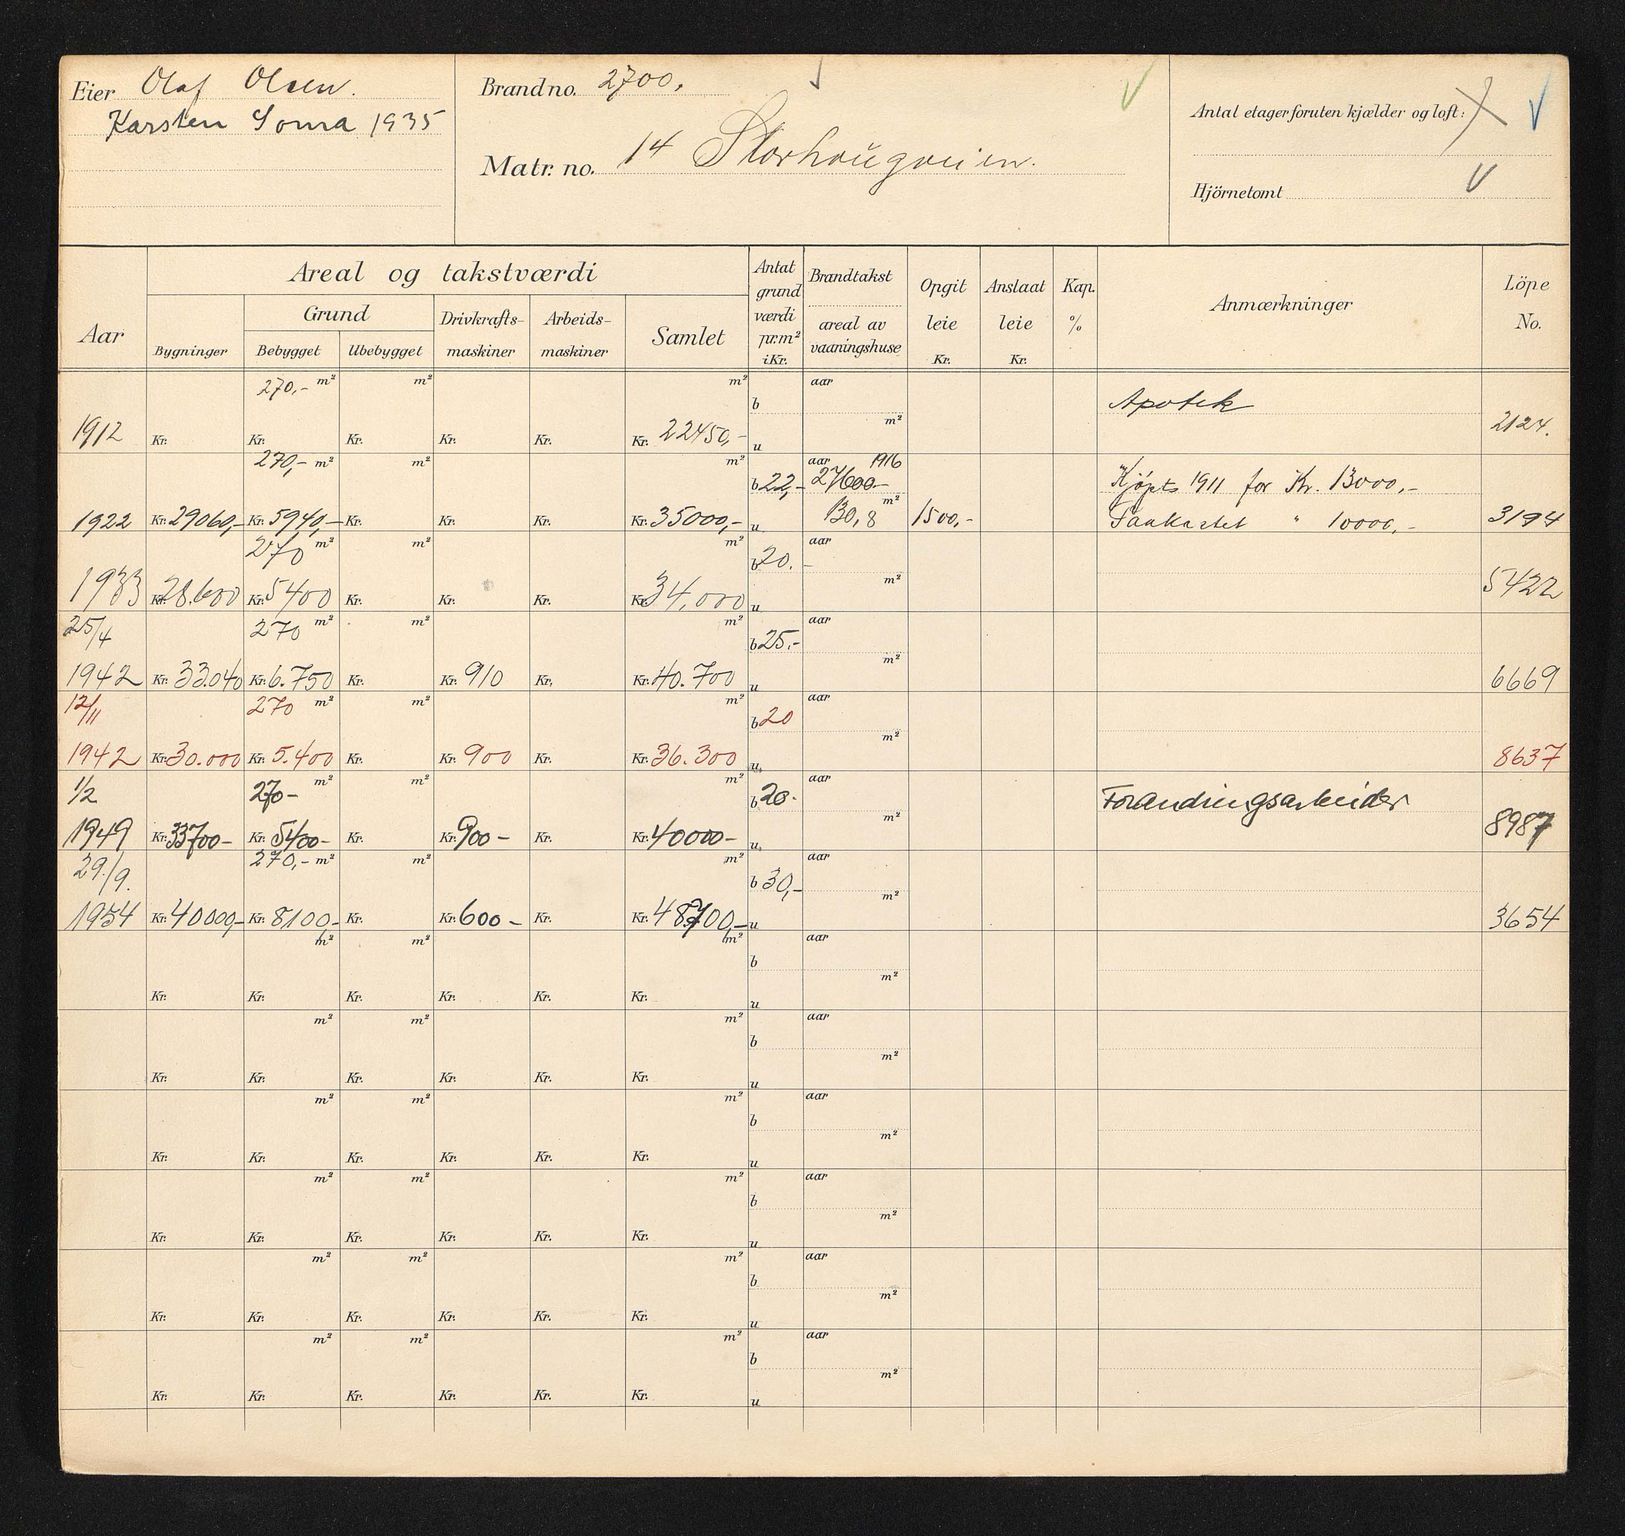 Eier Olaf Olsen.
Karsten Soma 1935
Brand no. 2700.
Matr. no. 14 Storhougveien.
Antal etager foruten kjælder og loft:
Hjörnetomt
Aar
Areal og takstværdi
Grund
Bygninger
Bebygget
Ubebygget
Drivkrafts-
maskiner
Arbeids-
maskiner
Samlet
Antat
grund
værdi
pr.m²
i Kr.
Brandtakst
areal av
vaaningshuse
Opgit
leie
Kr.
Anslaat
leie
Kr.
Kap.
%
Anmærkninger
Löpe
No.
270,- m² m² m² aar
b Apotek
m²
1912 Kr. Kr. Kr. Kr. Kr. Kr. 22450,- u 2124.
270,- m² m² m² aar 1916
b 22,- 27600- Kjøpts 1911 for Kr. 13000,-
m²
1922 Kr. 29060,- Kr. 5940,- Kr. Kr. Kr. Kr. 35000,- u 130,8 1500,- Paakostet " 10000,- 3194
270 m² m² m² aar
b 20.-
m²
1933 Kr. 28.600 Kr. 5400 Kr. Kr. Kr. Kr. 34,000 u 5422
25/4 270 m² m² m² aar
b 25.-
m²
1942 Kr. 33.040 Kr. 6.750 Kr. Kr. 910 Kr. Kr. 40.700 u 6669
12/11 270 m² m² m² aar
b 20
m²
1942 Kr. 30.000 Kr. 5.400 Kr. Kr. 900 Kr. Kr. 36.300 u 8637
1/2 270- m² m² m² aar
b 20.- Forandringsarbeider
m²
1949 Kr. 33700- Kr. 5400- Kr. Kr. 900- Kr. Kr. 40000- u 8987
29./9. 270,- m² m² m² aar
b 30,-
m²
1954 Kr. 40000,- Kr. 8100,- Kr. Kr. 600- Kr. Kr. 48700,- u 3654
m² m² m² aar
b
m²
Kr. Kr. Kr. Kr. Kr. Kr. u
m² m² m² aar
b
m²
Kr. Kr. Kr. Kr. Kr. Kr. u
m² m² m² aar
b
m²
Kr. Kr. Kr. Kr. Kr. Kr. u
m² m² m² aar
b
m²
Kr. Kr. Kr. Kr. Kr. Kr. u
m² m² m² aar
b
m²
Kr. Kr. Kr. Kr. Kr. Kr. u
m² m² m² aar
b
m²
Kr. Kr. Kr. Kr. Kr. Kr. u